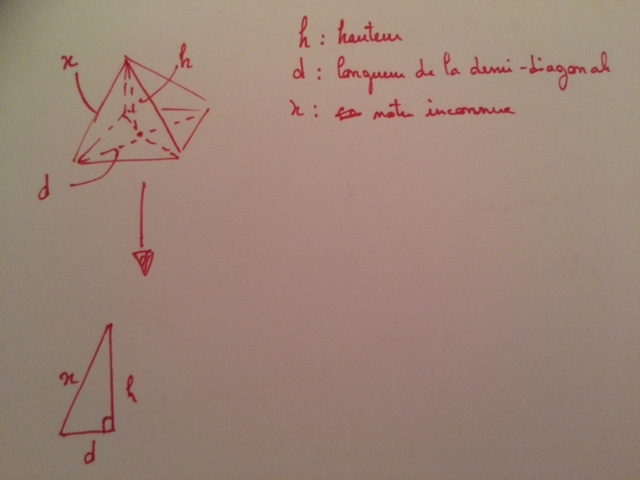 h : hauteur
d : longueur de la demi-diagonale
x : notre inconnue
x
h
d
x
h
d